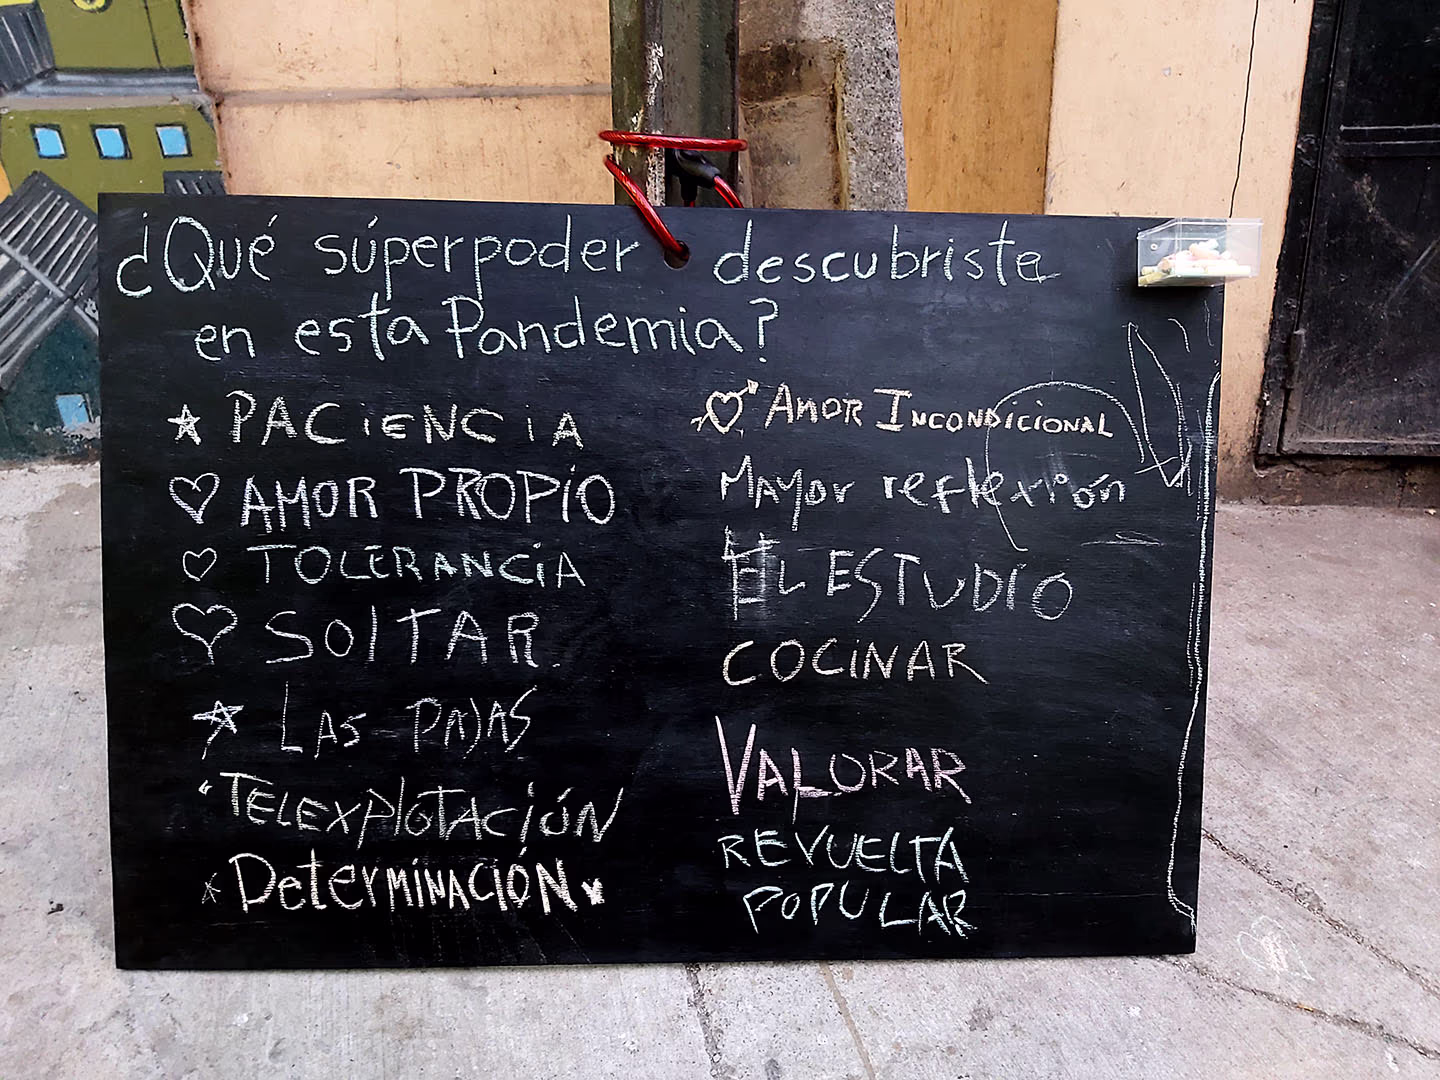 ¿Qué súperpoder descubriste
en esta Pandemia?
PACiENCiA
AMOR PROPiO
TOLERANCiA
SOlTAR
LAS PAJAS
"TELEXPlOTACiÓN
DeterMiNACIÓN
AMOR INCONDICIONAL
Mayor reflexión
EL ESTUDIO
COCiNAR
VALORAR
REVUELTA
POPULAR